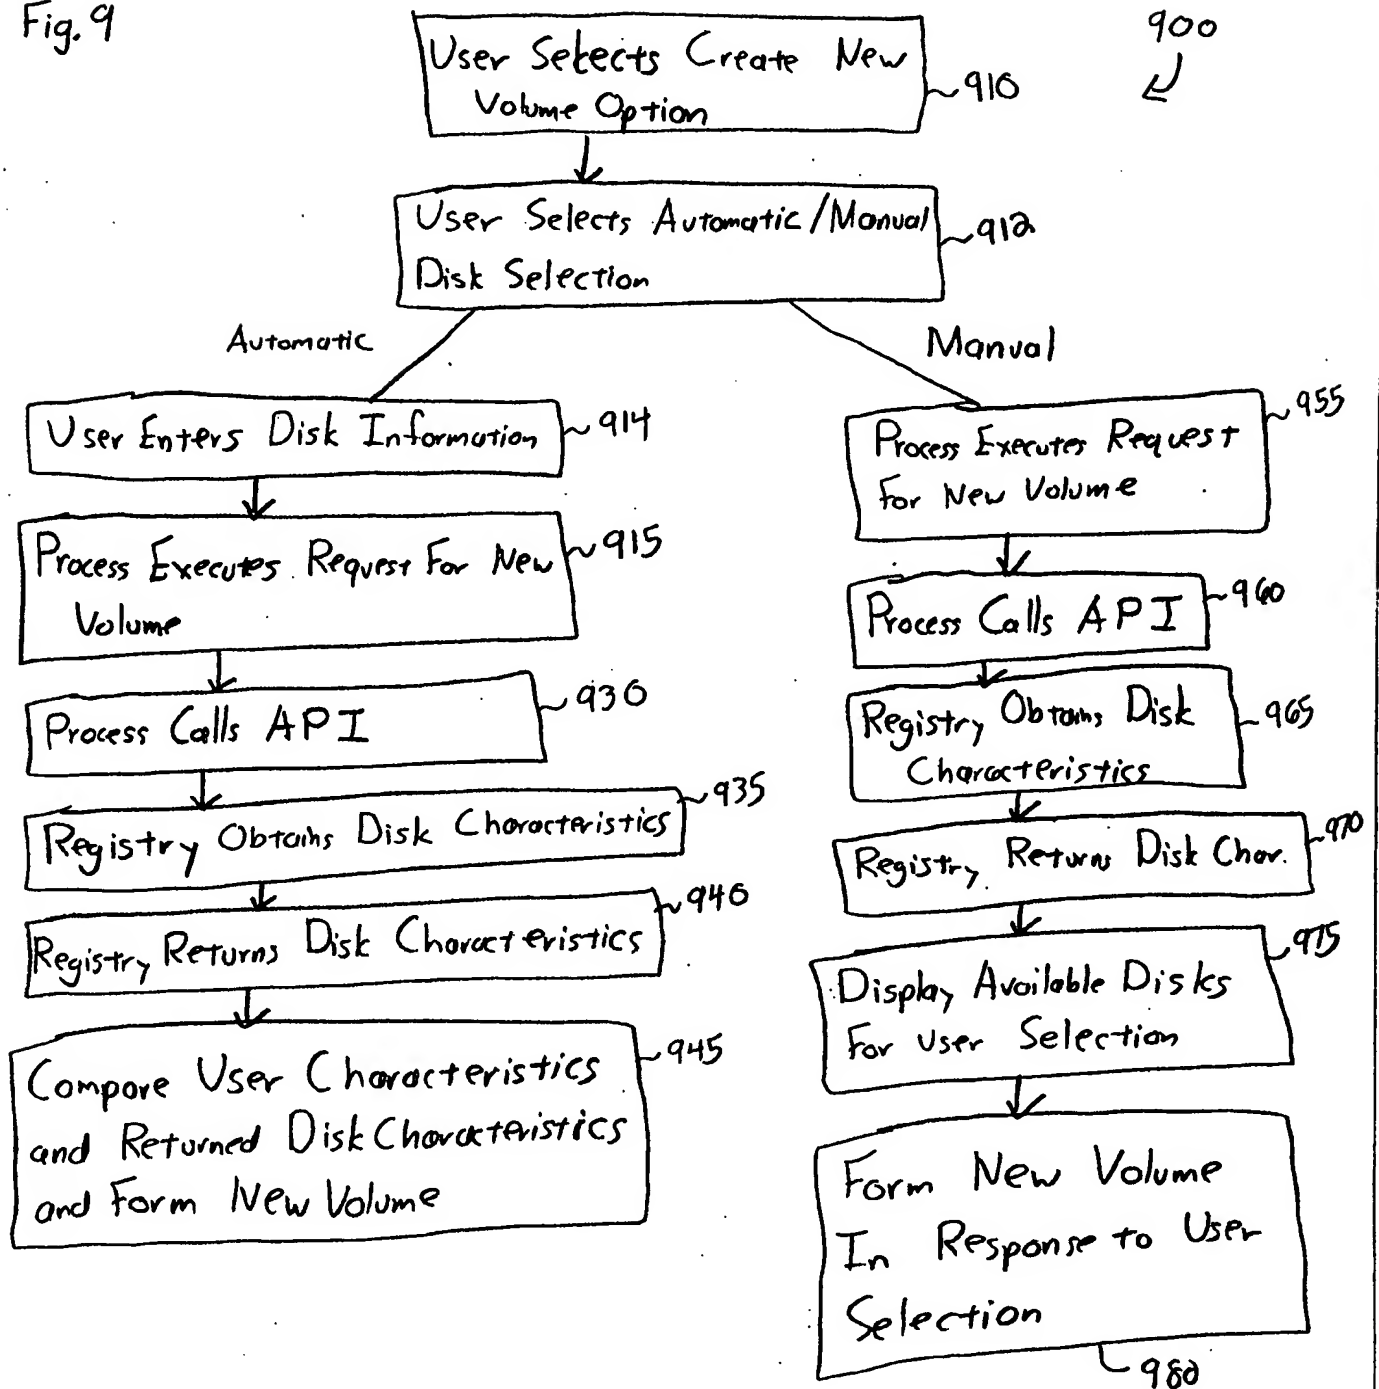 Fig. 9
900
User Selects Create New
Volume Option
910
User Selects Automatic/Manual
Disk Selection
912
Automatic
Manual
User Enters Disk Information
914
Process Executes Request For New
Volume
915
Process Calls API
930
Registry Obtains Disk Characteristics
935
Registry Returns Disk Characteristics
940
Compare User Characteristics
and Returned Disk Characteristics
and Form New Volume
945
Process Executes Request
For New Volume
955
Process Calls API
960
Registry Obtains Disk
Characteristics
965
Registry Returns Disk Char.
970
Display Available Disks
For User Selection
975
Form New Volume
In Response to User
Selection
980